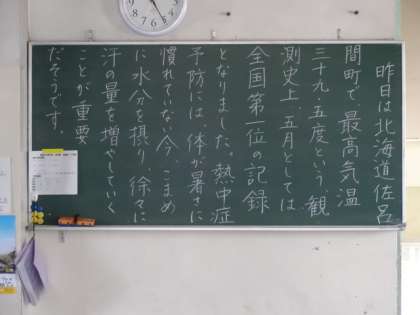 昨日は北海道佐呂
間町で最高気温
三十九．五度という、観
測史上、五月としては
全国第一位の記録
となりました。熱中症
予防には、体が暑さに
慣れていない今、こまめ
に水分を摂り、徐々に
汗の量を増やしていく
ことが重要
だそうです。